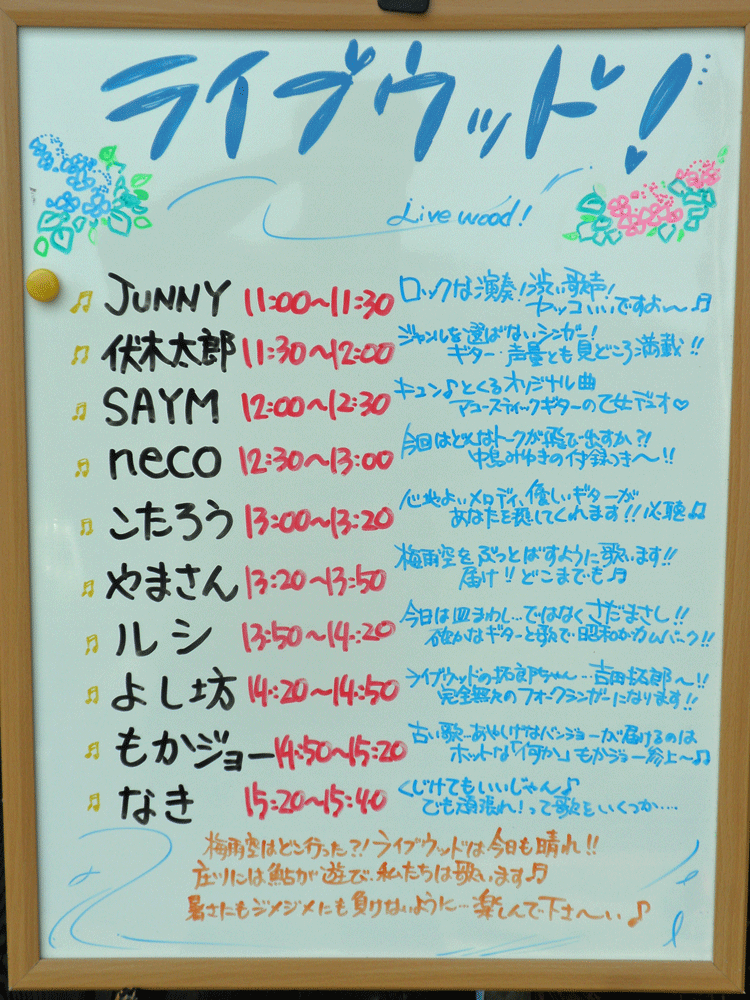 ライブウッド!
Live wood!
♬ JUNNY 11:00〜11:30 ロックな演奏!渋い歌声!
カッコいいですよぉ〜♬
♬ 伏木太郎 11:30〜12:00 ジャンルを選ばないシンガー!
ギター・声量とも見どころ満載!!
♬ SAYM 12:00〜12:30 キュン♪とくるオリジナル曲
アコースティックギターの乙女デュオ♡
♬ neco 12:30〜13:00 今日はどんなトークが飛び出すか?!
中島みゆきの付録つき〜!!
♬ こたろう 13:00〜13:20 心地よいメロディ、優しいギターが
あなたを癒してくれます!!必聴♫
♬ やまさん 13:20〜13:50 梅雨空をぶっとばすように歌います!!
届け!!どこまでも♬
♬ ルシ 13:50〜14:20 今日は皿まわし…ではなくさだまさし!!
確かなギターと歌で昭和がカムバーック!!
♬ よし坊 14:20〜14:50 ライブウッドの拓郎ちゃん…吉田拓郎〜!!
完全無欠のフォークシンガーになります!!
♬ もかジョー 14:50〜15:20 古い歌…あやしげなバンジョーが届けるのは
ホットな「何か」もかジョー参上〜♫
♬ なき 15:20〜15:40 くじけてもいいじゃん♪
でも頑張れ!って歌をいくつか…
梅雨空はどこ行った?!ライブウッドは今日も晴れ!!
庄川には鮎が遊び、私たちは歌います♬
暑さにもジメジメにも負けないように…楽しんで下さ〜い♪